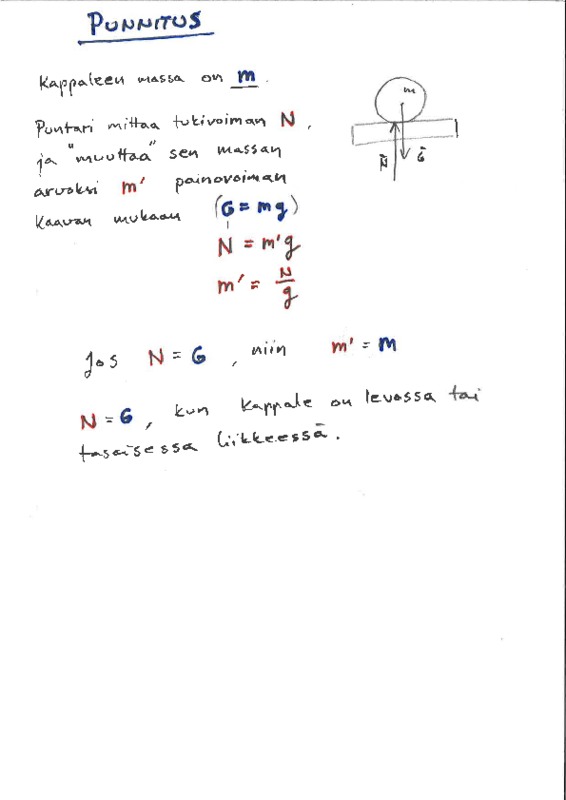 PUNNITUS
Kappaleen massa on m.
Puntari mittaa tukivoiman N,
ja "muuttaa" sen massan
arvoksi m' painovoiman
kaavan mukaan (G = mg)
N = m'g
m' = N/g
Jos N = G, niin m' = m
N = G, kun kappale on levossa tai
tasaisessa liikkeessä.
m
N̄ Ḡ